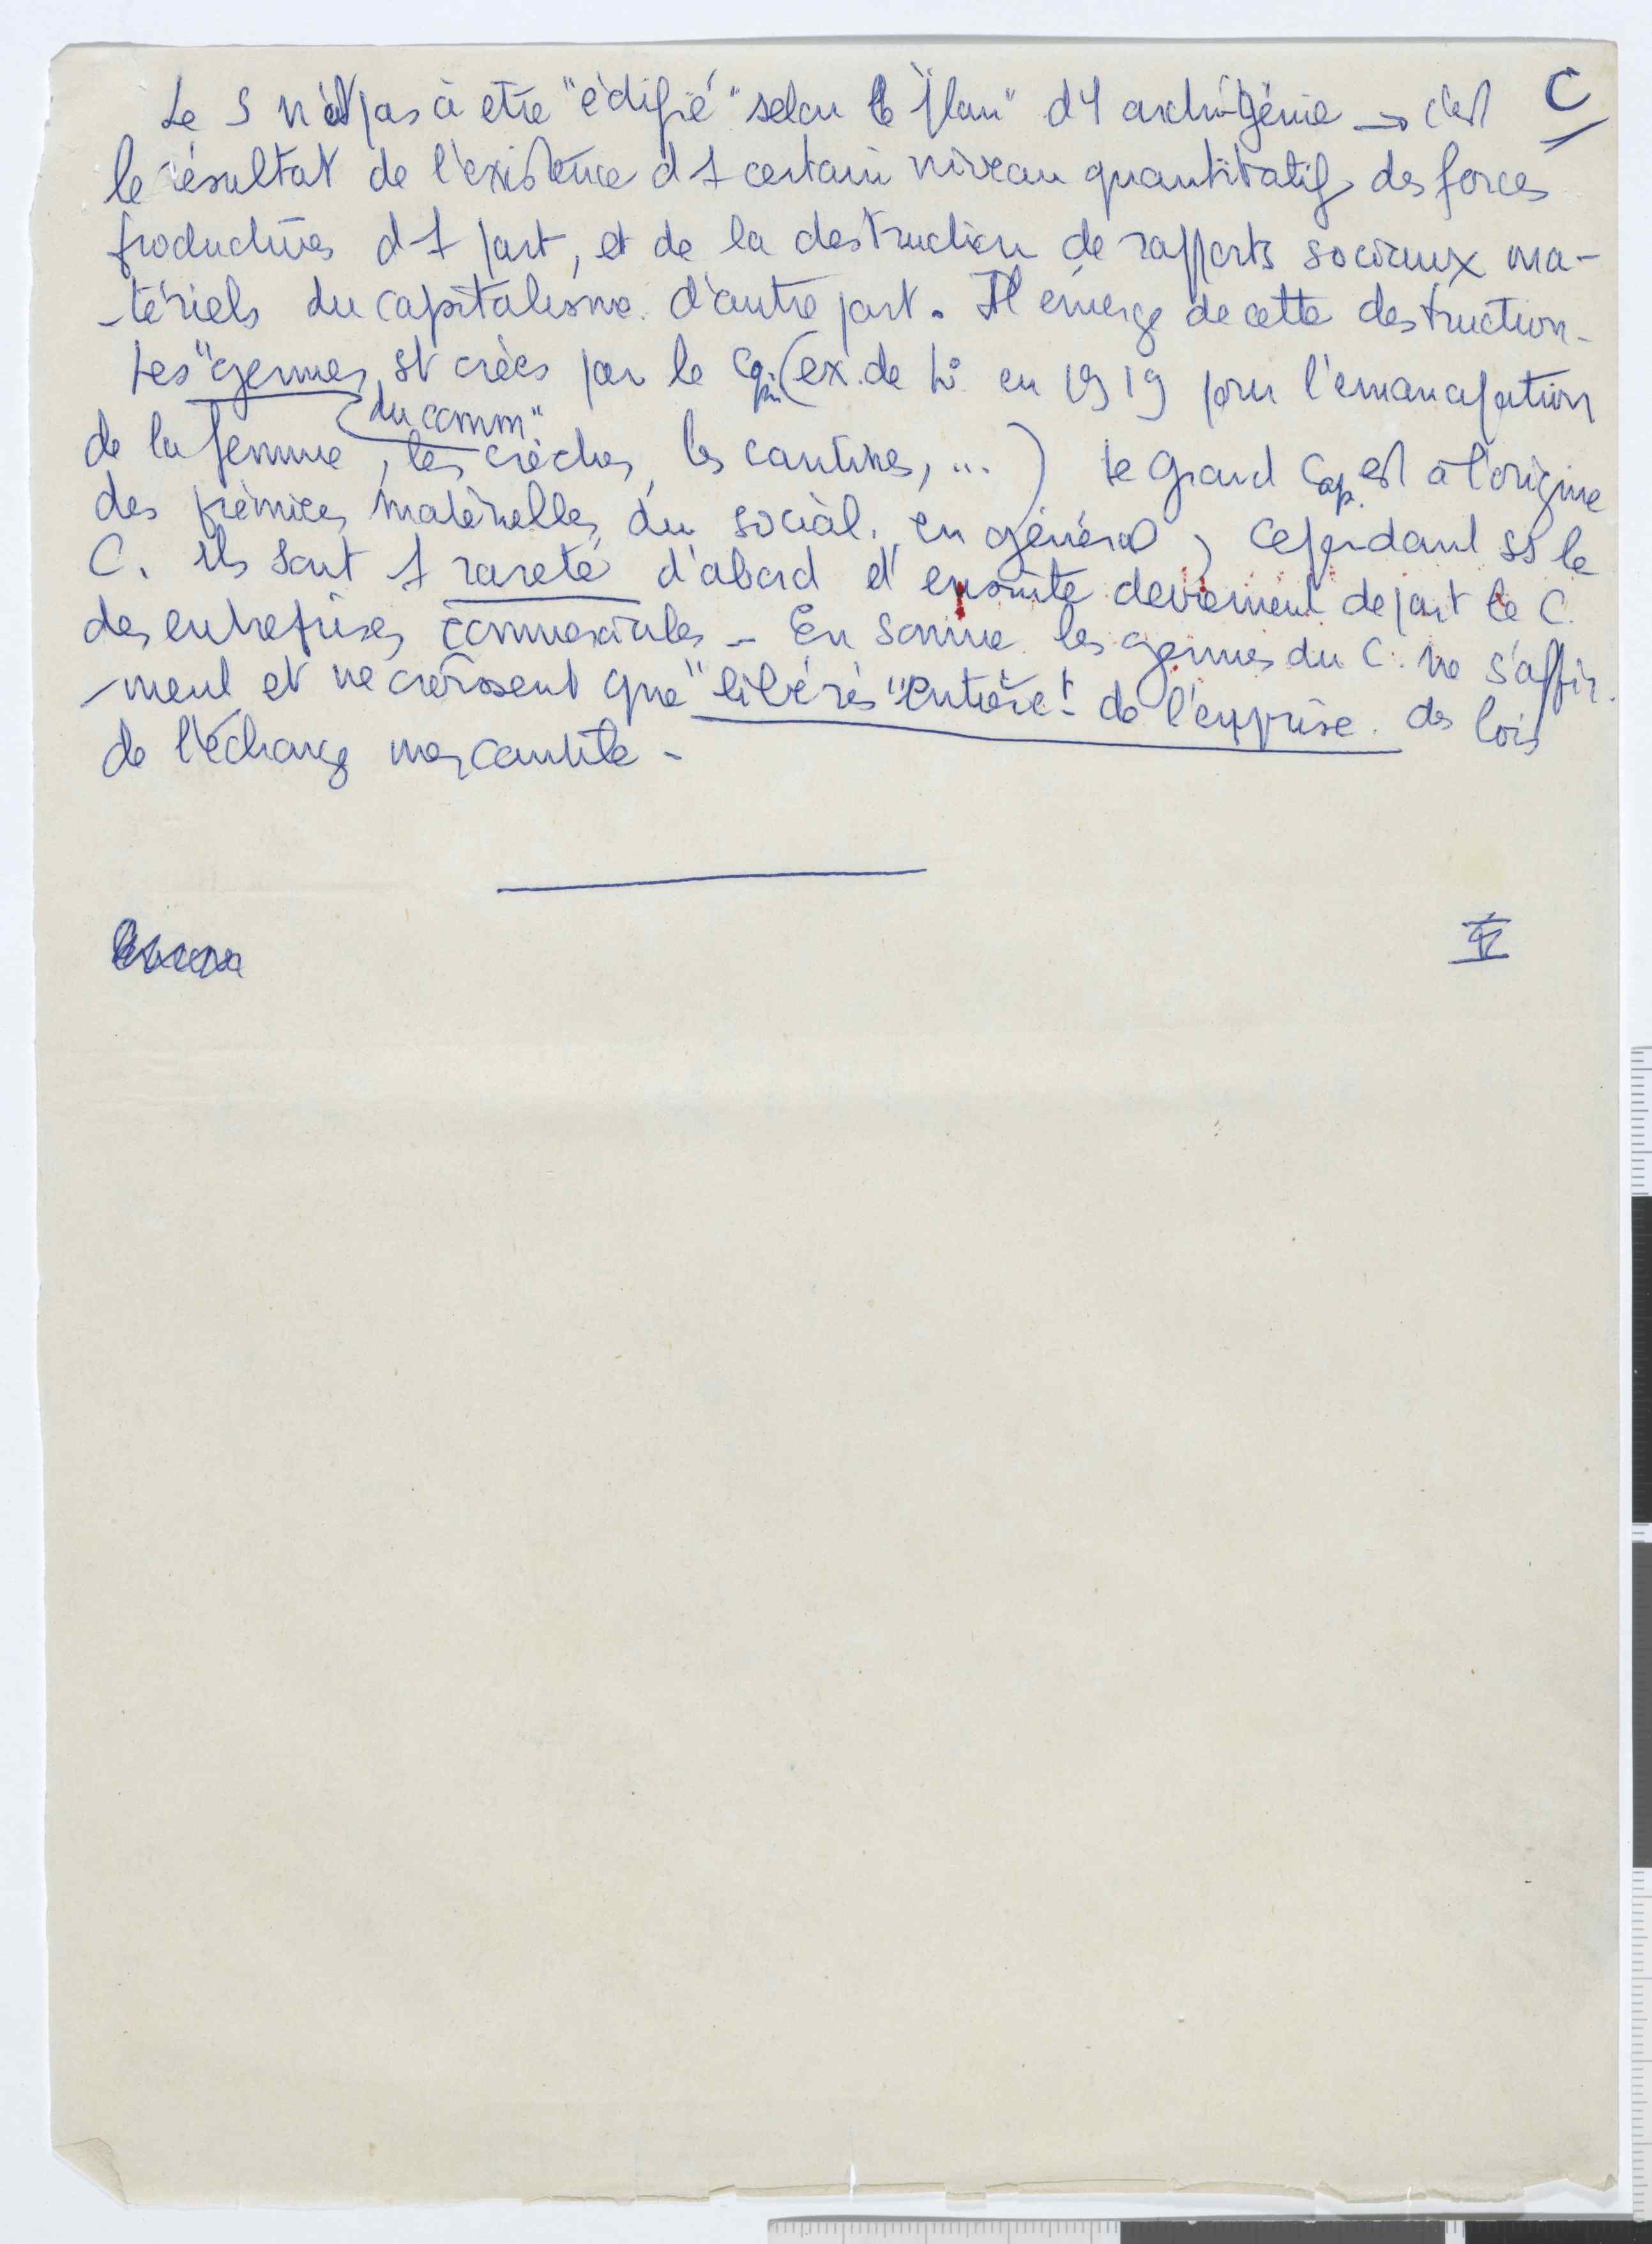 C
Le S n'est pas à etre "édifié" selon le "plan" d'1 archi-génie → c'est
le résultat de l'existence d 1 certain niveau quantitatif des forces
productives d 1 part, et de la destruction de rapports sociaux ma-
-tériels du capitalisme d'autre part. Il émerge de cette destruction.
Les "germes st créés par le (ex. de en 1919 pour l'émancipation
du comm"
de la femme, les crèches, les cantines, ...) Le grand Cap. est à l'origine
des prémices matérielles du social. en général, cependant ss le
C. ils sont 1 rareté d'abord et ensuite deviennent de part le C.
des entreprises commerciales - En somme les germes du C. ne s'affir.
-ment et ne croissent que "libérés" entièret de l'emprise des lois
de l'échange mercantile -